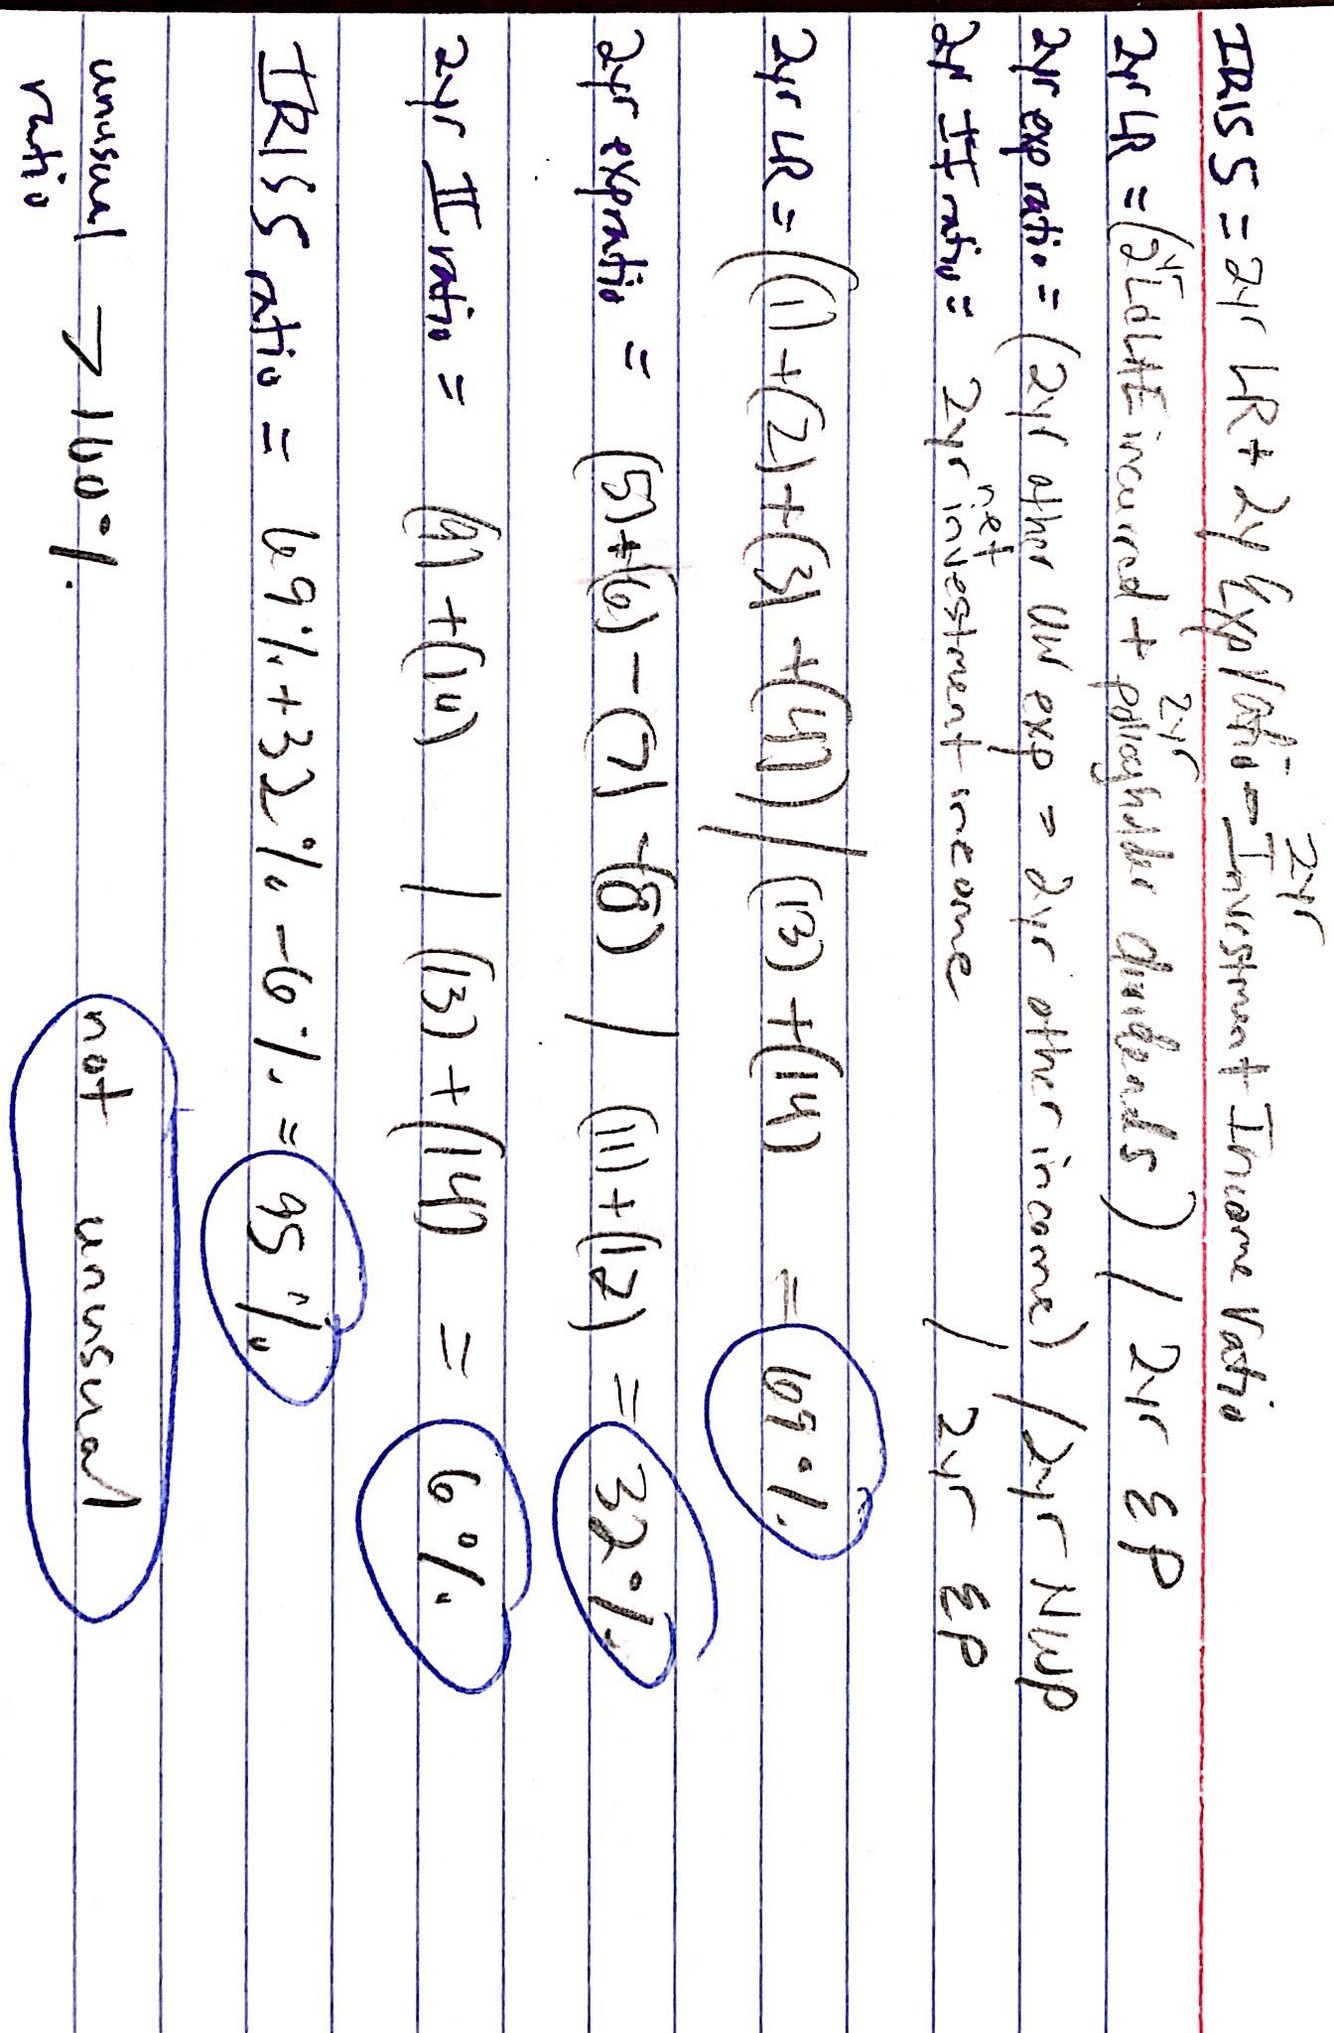 IRIS 5 = 2yr LR + 2y Exp ratio - 2yr Investment Income ratio
2yr LR = (2yr L&LAE incurred + 2yr policyholder dividends) / 2yr EP
2yr exp ratio = (2yr other UW exp - 2yr other income) / 2yr NWP
2yr II ratio = 2yr net investment income / 2yr EP
2yr LR = ((1) + (2) + (3) + (4)) / (13) + (14) = 69%
2yr exp ratio = (5) + (6) - (7) - (8) / (11) + (12) = 32%
2yr II ratio = (9) + (10) / (13) + (14) = 6%
IRIS 5 ratio = 69% + 32% - 6% = 95%
unusual ratio > 100% not unusual